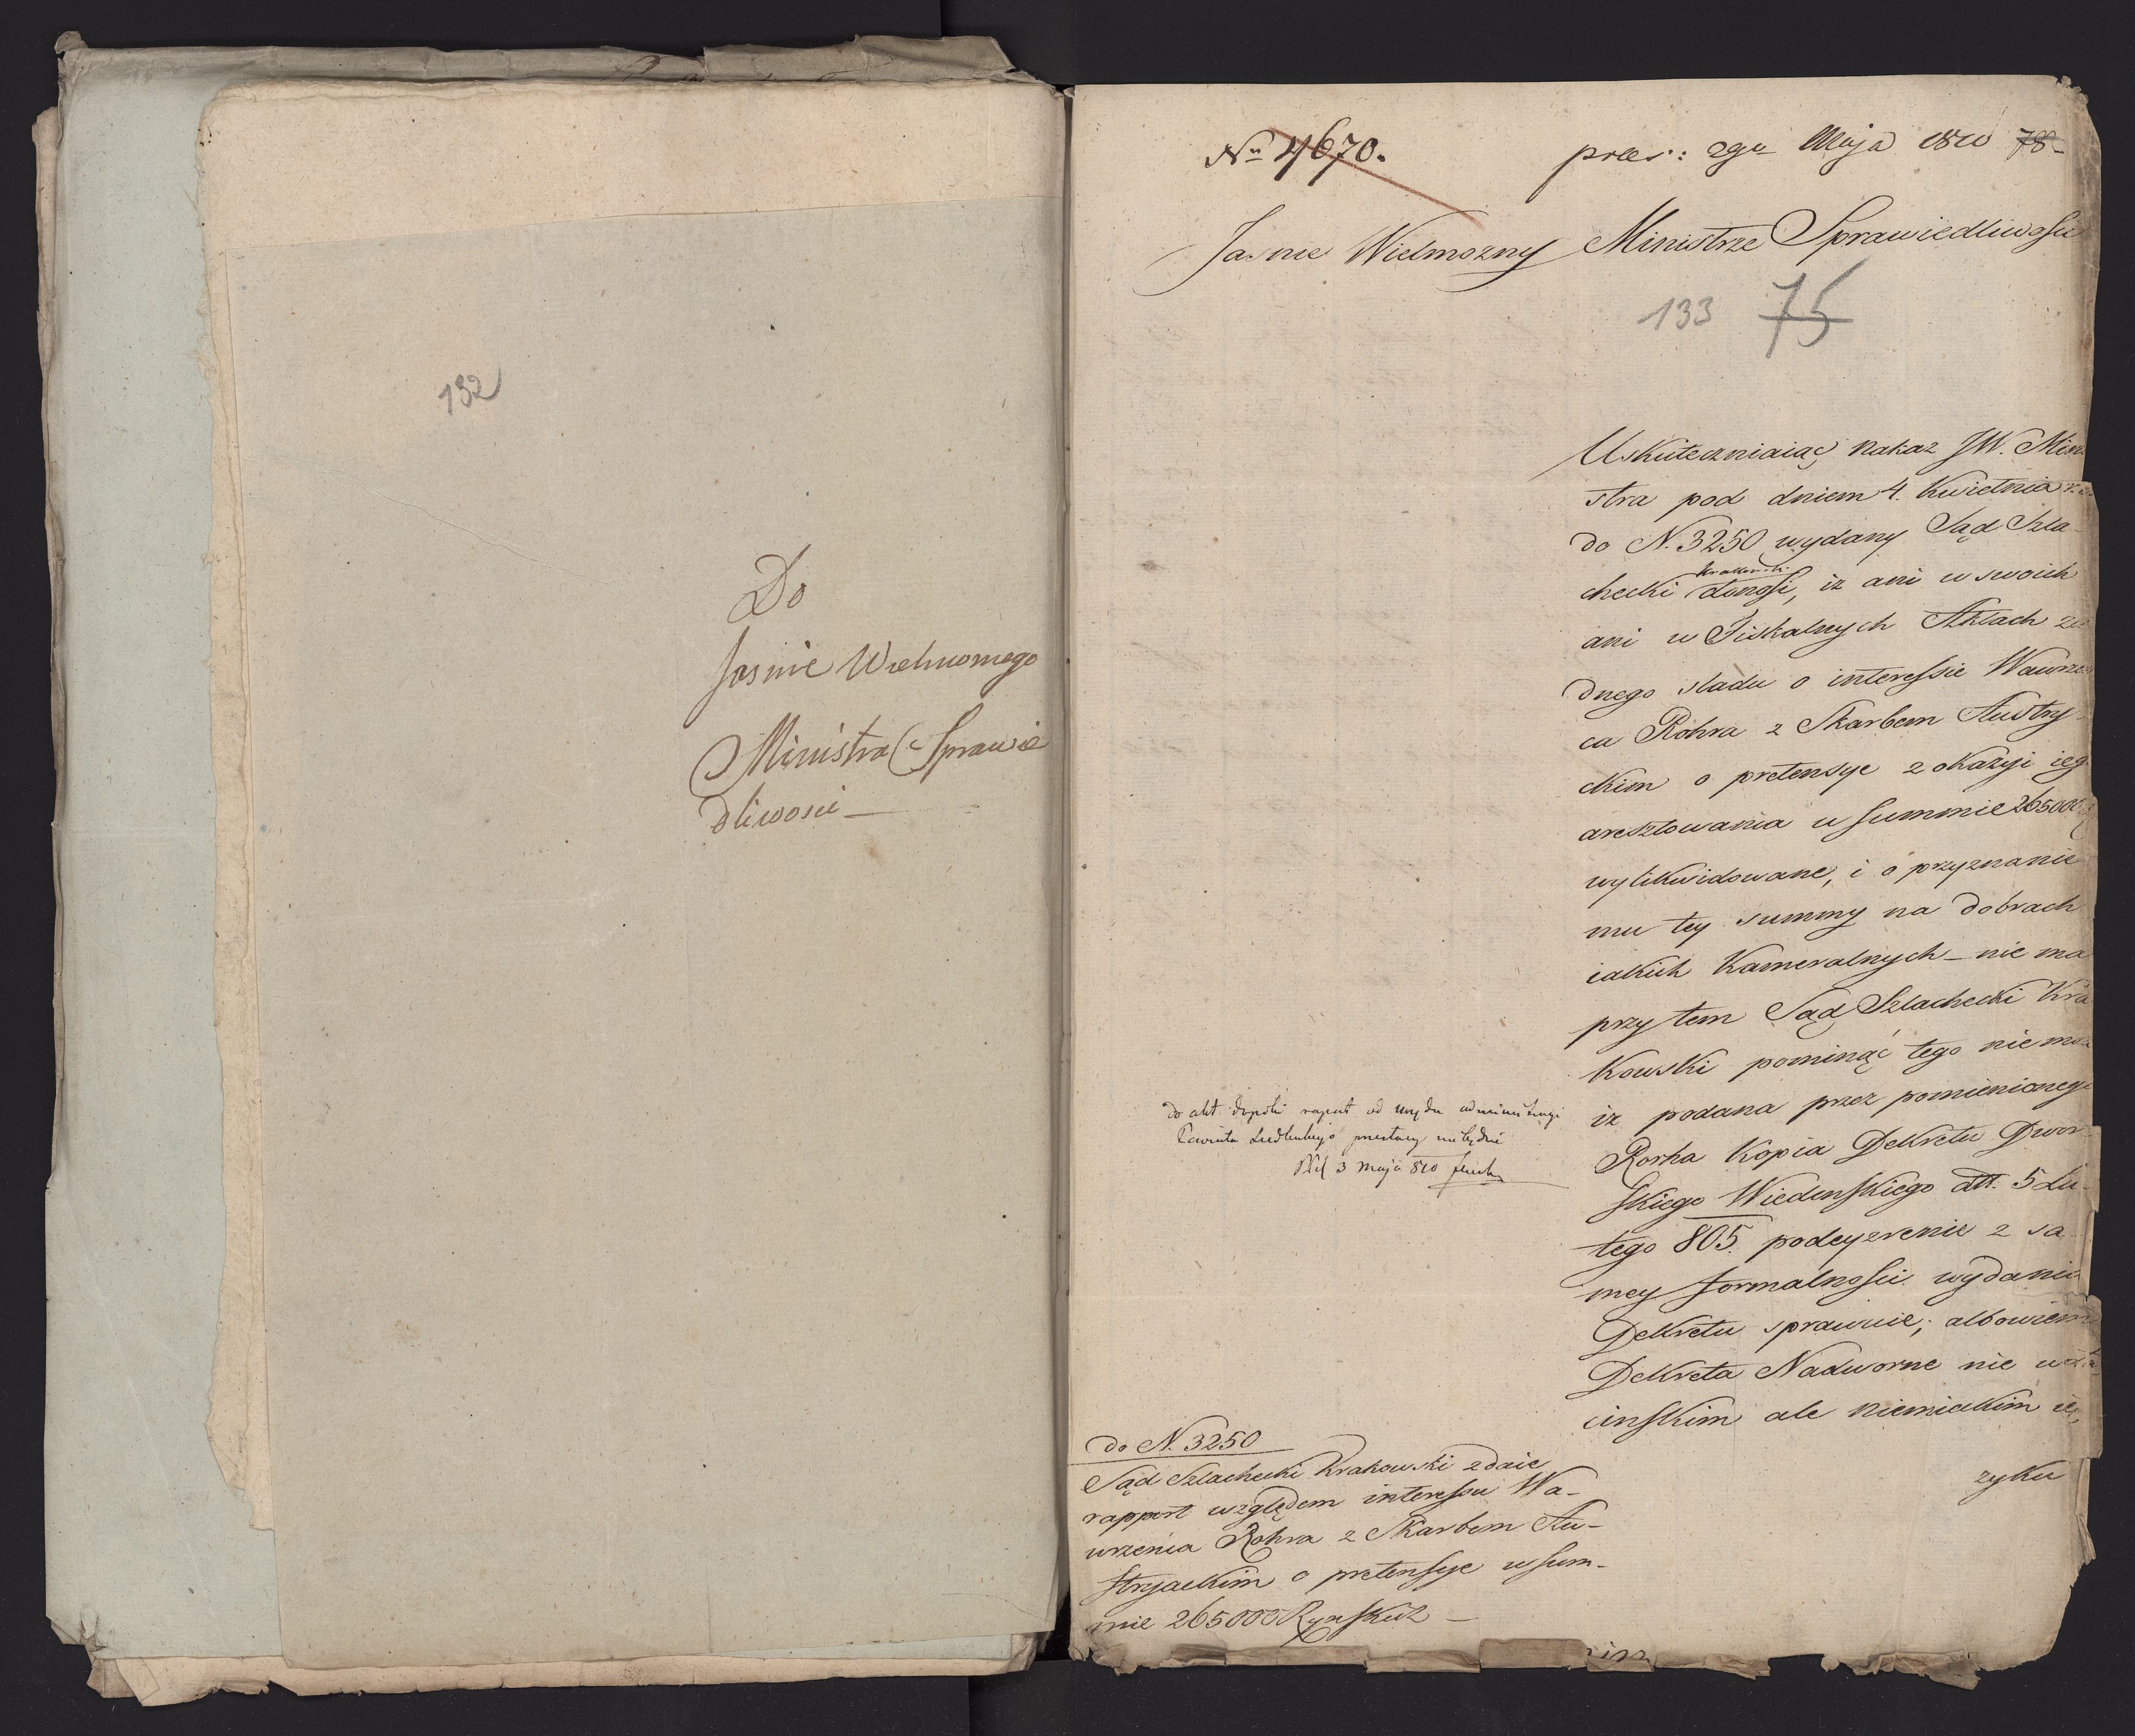 132
Do
Jasnie Wielmornego
Ministra Sprawie
dliwosci
No 4670.
pres: 2go Maja 1810 78
Jasnie Wielmozny Ministrze Sprawiedliwosci
133 75
Uskuteczniaiąc nakaz JW. Mini
stra pod dniem 4. Kwietnia
do N. 3250 wydany Sąd Szla
checki Krakowski donosi, iz ani w swoich
ani w Fiskalnych Aktach
dnego sladu o interessie Wawrze
ca Rohra z Skarbem Austry
ckim o pretensye z okazyi ieg
aresztowania w summie 265000
wylikwidowane, i o przyznanie
mu tey summy na dobrach
iakich Kameralnych – nie ma
przytem Sąd Szlachecki Kra
kowski pominąć tego nie
iz podana przez pomienionego
Rorha Kopia Dekretu Dwor
skiego Wiedenskiego dtt. 5 Lu
tego 805. podeyzrenie z sa
mey formalnosci wydania
Dekretu sprawuie; albowiem
Dekreta Nadworne nie w
cinskim ale niemieckim ię
zyku
do akt dopóki raport od
3 maja 810
do N. 3250
Sąd Szlachecki Krakowski zdaie
rapport względem interessu Wa-
wrzenca Rohra z Skarbem Au-
stryackim o pretensye w sum-
mie 265000 Rynskich –